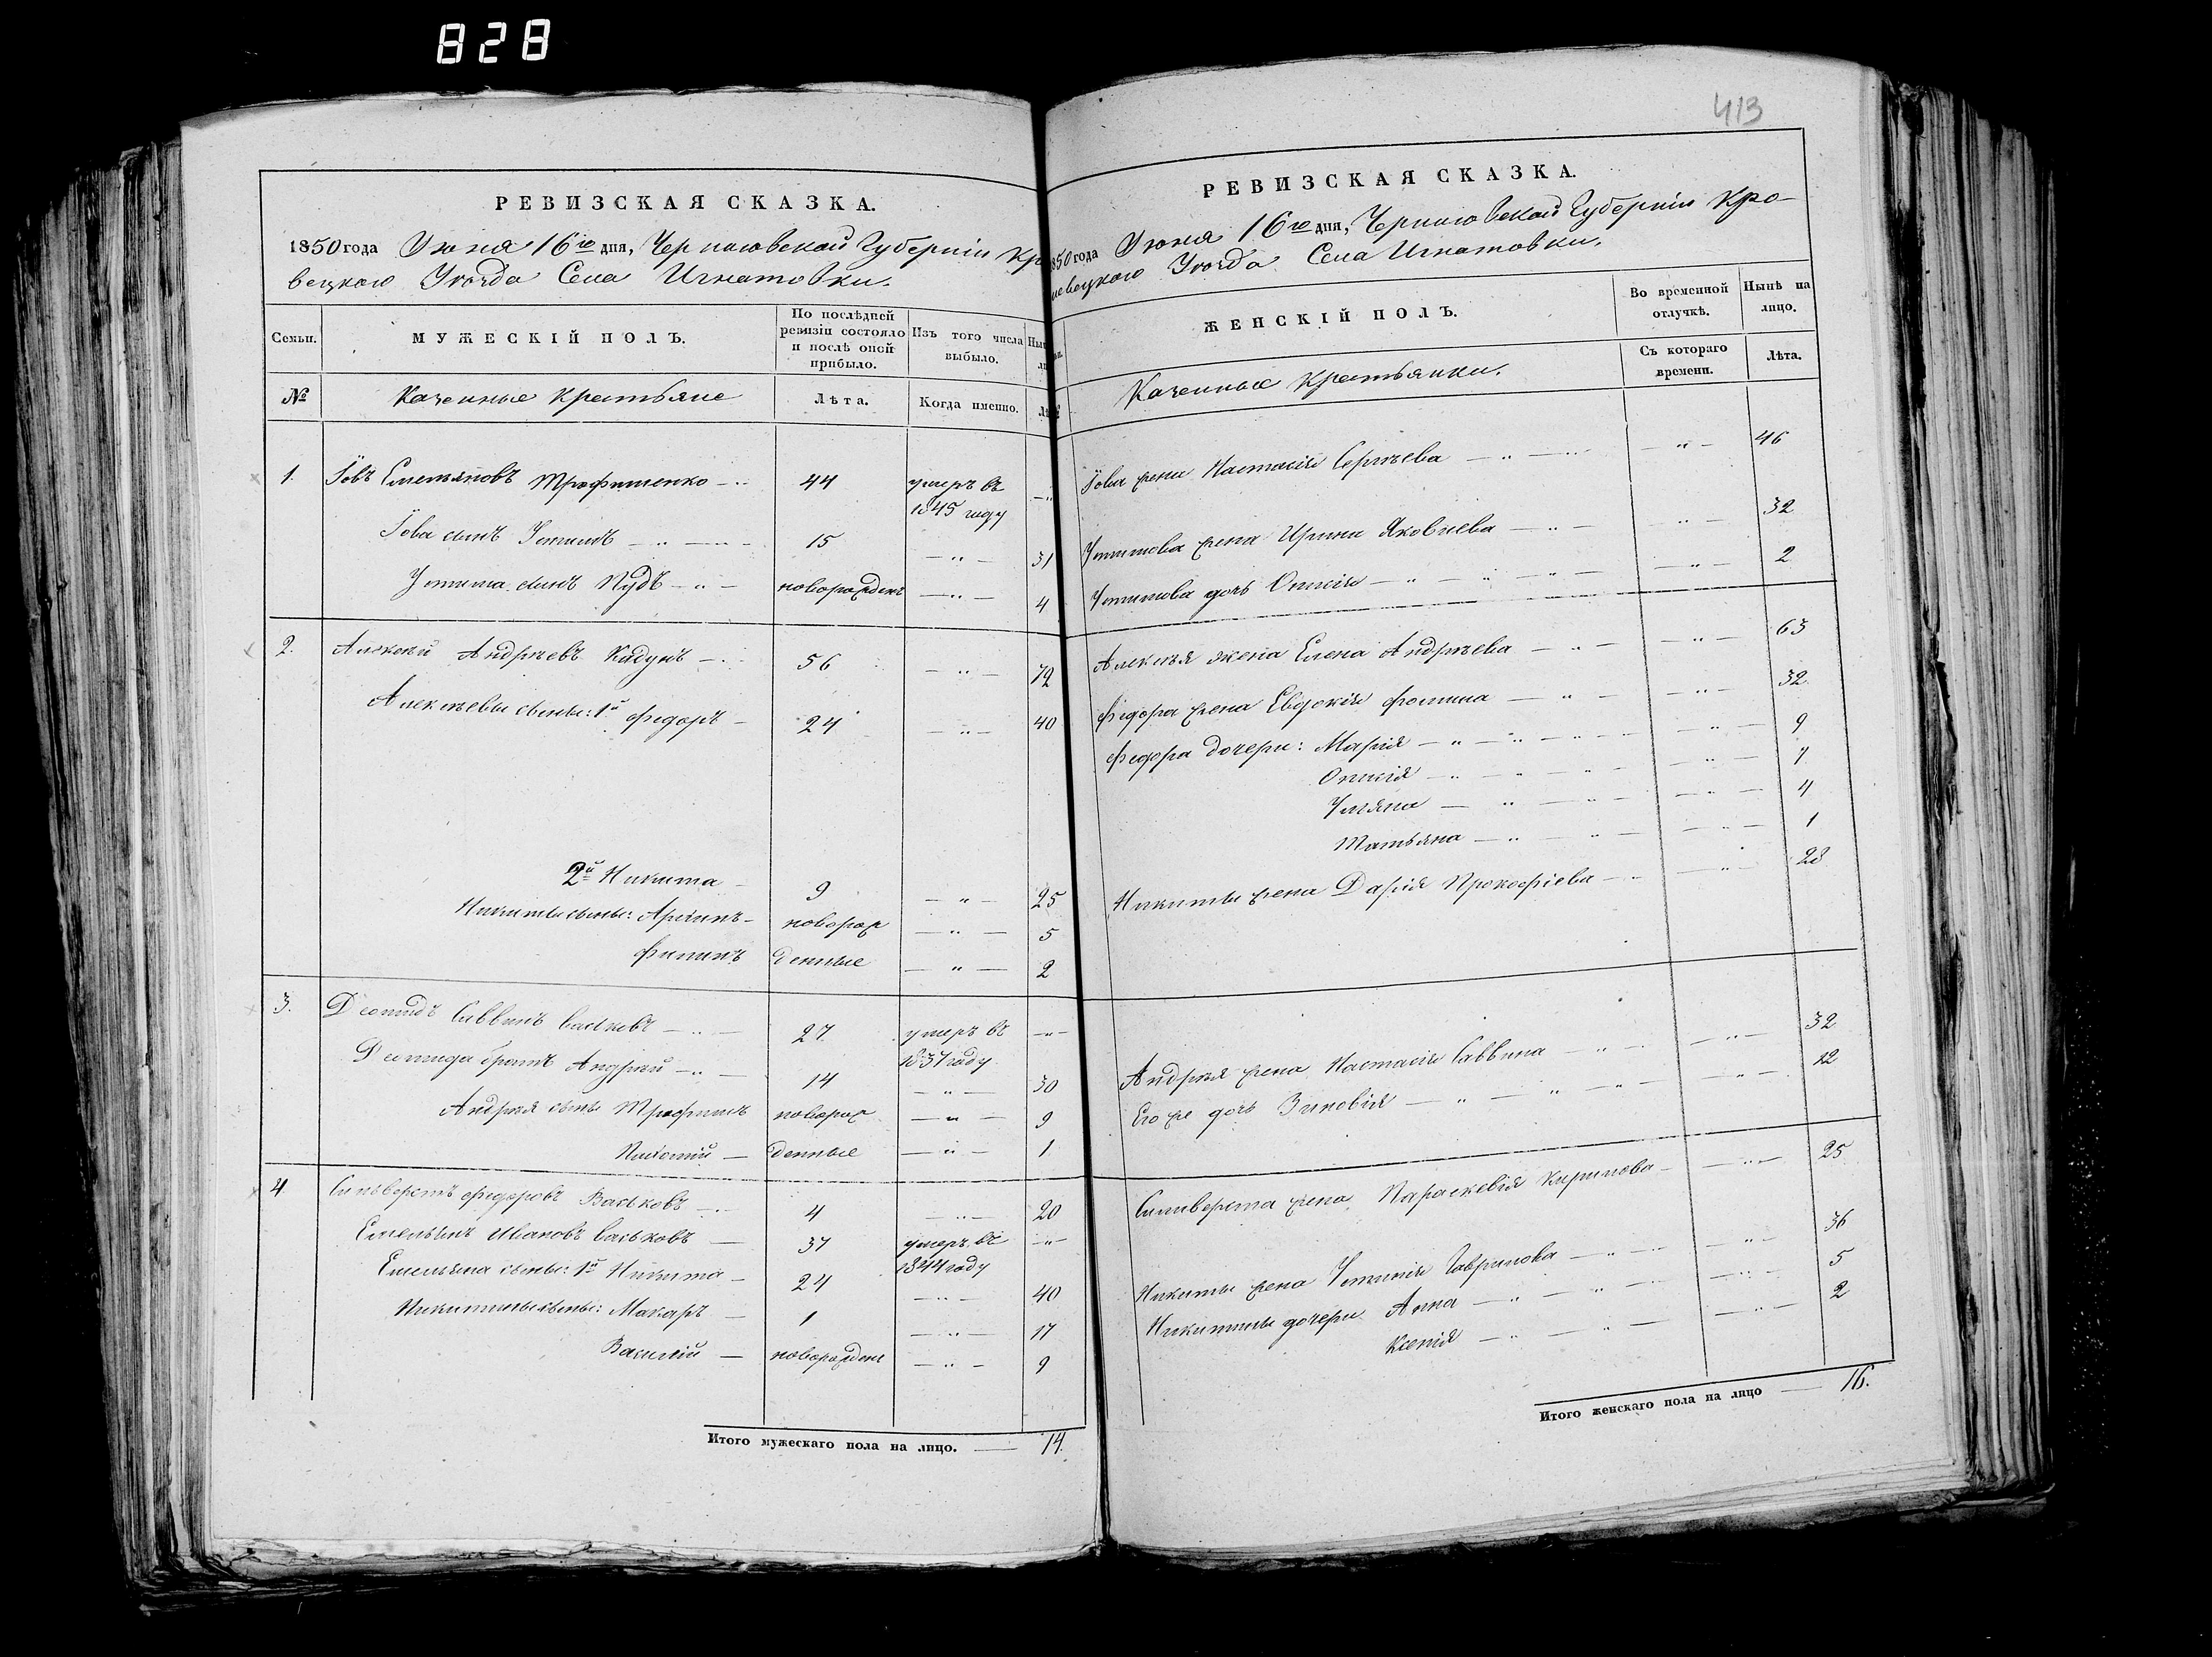 828
413
РЕВИЗСКАЯ СКАЗКА.
1850 года Июня 16го дня, Черниговской Губерніи Кр
вецкаго Уѣзда Села Игнатовки.
Семьи. МУЖЕСКІЙ ПОЛЪ. По послѣдней ревизіи состояло и послѣ оной прибыло. Изъ того числа выбыло.
№ Казенные Крестьяне Лѣта. Когда именно.
1. Іовъ Емельяновъ Трофименко 44 умеръ въ
1845 году
Іова сынъ Устимъ 15 31
Устима сынъ Пудъ новорожденъ 4
2. Алексѣй Андрѣевъ Кадунъ 56 72
Алексѣевы сыны: 1й Федоръ 24 40
2й Никита 9 25
Никиты сыны: новорож 5
Филипъ денные 2
3. Деомидъ Саввинъ Васьковъ 27 умеръ въ
1837 году
Деомида братъ Андрѣй 14 30
Андрѣя сыны Трофимъ новорож 9
Пахомій денные 1
4 Сильверстъ Федоровъ Васьковъ 4 20
Емельянъ Ивановъ Васьковъ 37 умеръ въ
1844 году
Емельяна сыны: 1й Никита 24 40
Никитины сыны: Макаръ 1 17
Василій новорожден 9
Итого мужескаго пола на лицо. 14.
РЕВИЗСКАЯ СКАЗКА.
850 года Июня 16го дня, Черниговской Губерніи Кро-
левецкаго Уѣзда Села Игнатовки.
ЖЕНСКІЙ ПОЛЪ. Во временной отлучкѣ. Нынѣ на лицо.
Казенные Крестьянки. Съ котораго времени. Лѣта.
Іова жена Настасія Сергѣева 46
Устимова жена Ирина Яковлева 32
Устимова дочь Онисія 2
Алексѣя жена Елена Андрѣева 63
Федора жена Евдокія Фомина 32
Федора дочери: Марія 9
Онисія 7
Ульяна 4
Татьяна 1
Никиты жена Дарія Прокофіева 28
Андрѣя жена Настасія Саввина 32
Его же дочь Зиновія 12
Сильверста жена Параскевія Кирилова 25
Никиты жена Устинія Гаврилова 36
Никитины дочери Анна 5
Ксенія 2
Итого женскаго пола на лицо 16.